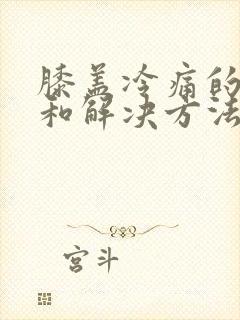 膝盖冷痛的
和解决方法
宫斗